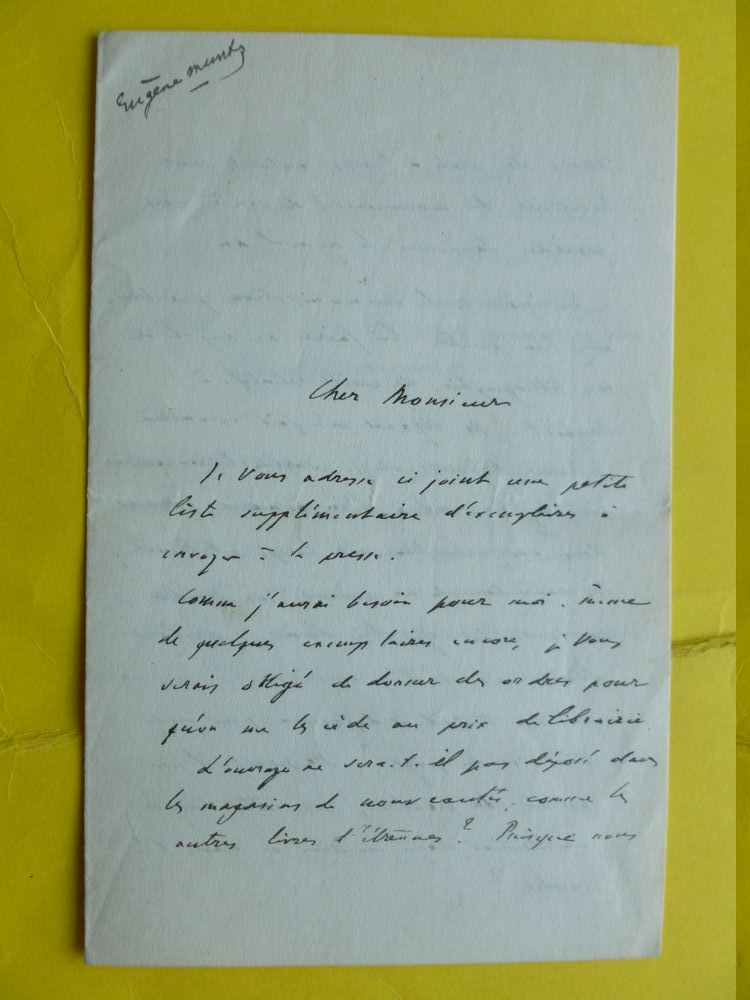 Eugène Muntz
Cher Monsieur
Je vous adresse ci joint une petite
liste supplémentaire d'exemplaires à
envoyer à la presse.
Comme j'aurai besoin pour moi-même
de quelques exemplaires encore, je vous
serais obligé de donner des ordres pour
qu'on me les cède au prix de librairie.
L'ouvrage ne sera-t-il pas déposé dans
les magasins de nouveautés, comme les
autres livres d'étrennes ? Puisque nous